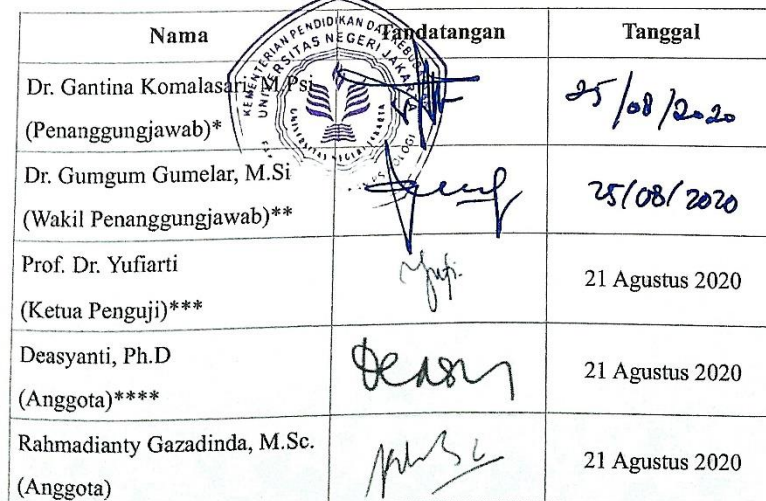 Nama Tandatangan Tanggal
Dr. Gantina Komalasari, M.Psi
(Penanggungjawab)*
25/08/2020
Dr. Gumgum Gumelar, M.Si
(Wakil Penanggungjawab)**
25/08/2020
Prof. Dr. Yufiarti
(Ketua Penguji)***
21 Agustus 2020
Deasyanti, Ph.D
(Anggota)****
21 Agustus 2020
Rahmadianty Gazadinda, M.Sc.
(Anggota)
21 Agustus 2020
UNIVERSITAS NEGERI JAKARTA